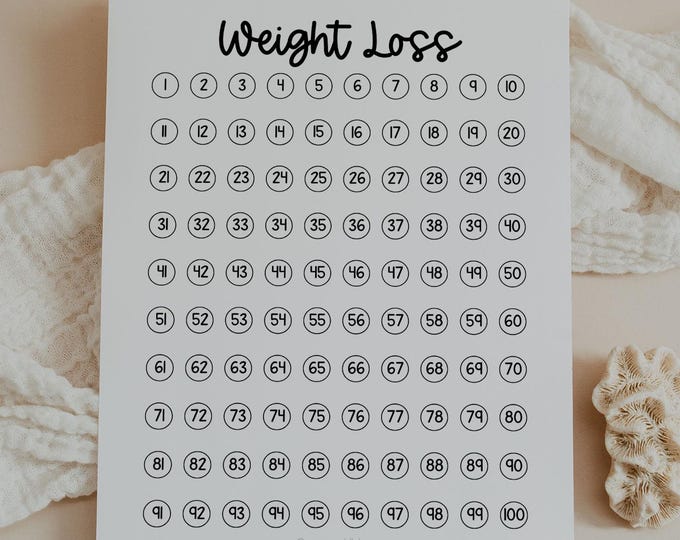 Weight Loss
1 2 3 4 5 6 7 8 9 10
11 12 13 14 15 16 17 18 19 20
21 22 23 24 25 26 27 28 29 30
31 32 33 34 35 36 37 38 39 40
41 42 43 44 45 46 47 48 49 50
51 52 53 54 55 56 57 58 59 60
61 62 63 64 65 66 67 68 69 70
71 72 73 74 75 76 77 78 79 80
81 82 83 84 85 86 87 88 89 90
91 92 93 94 95 96 97 98 99 100